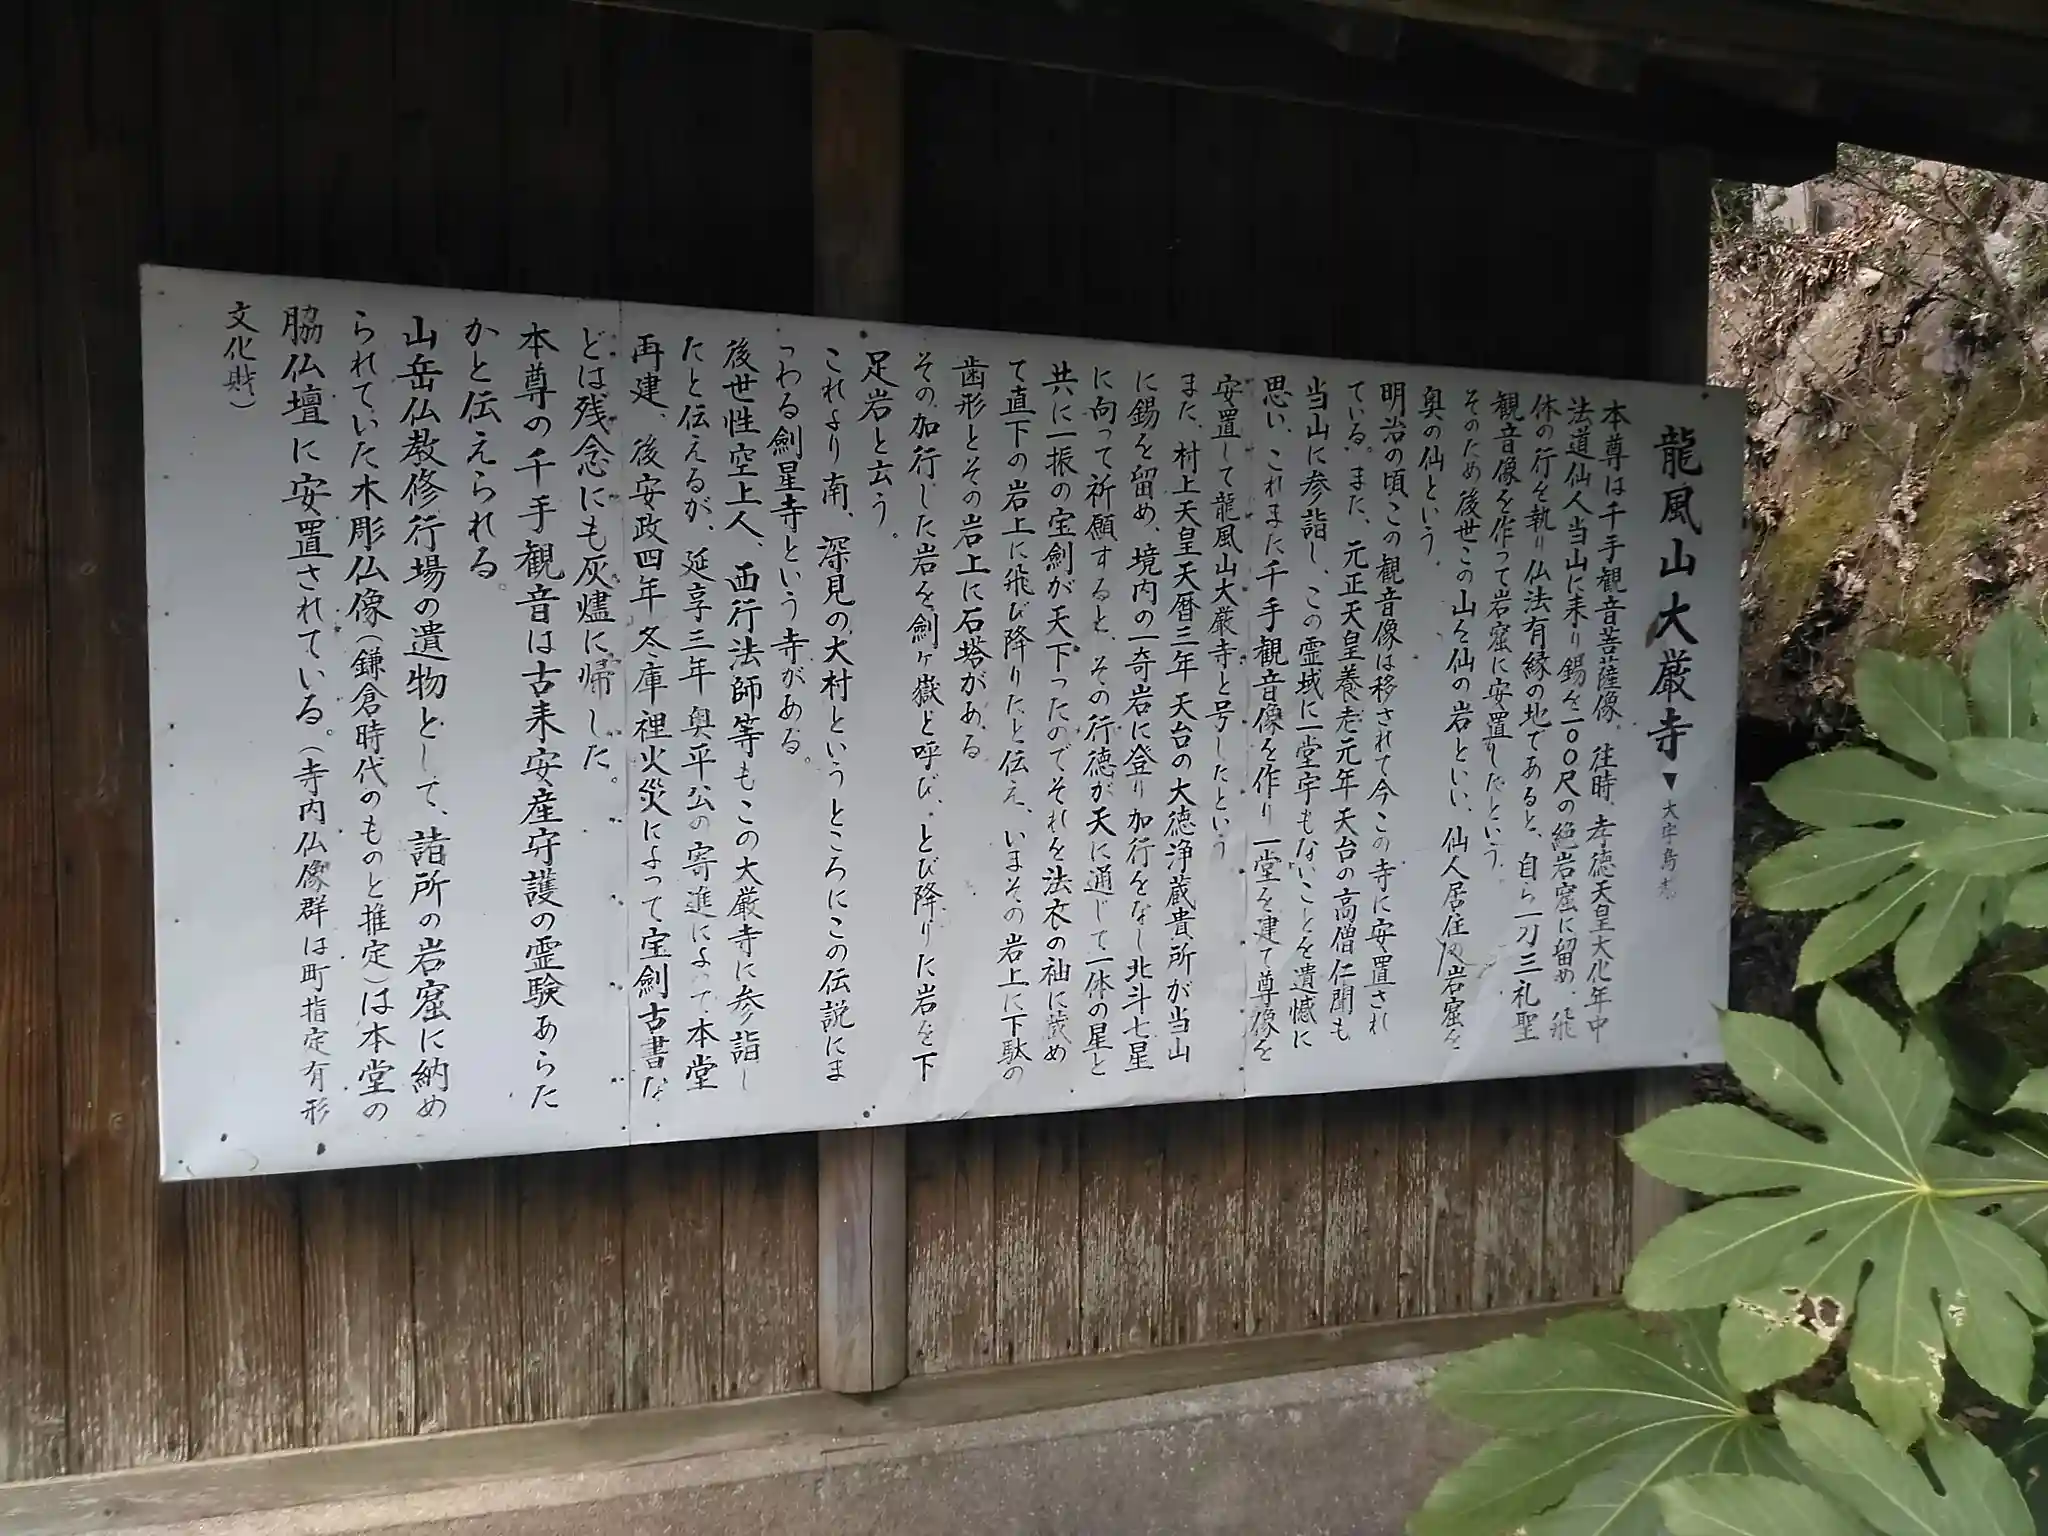 龍風山大厳寺▼大字鳥
本尊は千手観音菩薩像。往時、孝徳天皇大化年中
法道仙人当山に来り錫を一〇〇尺の絶岩窟に留め、飛
休の行を執り仏法有縁の地であると、自ら一刀三礼聖
観音像を作って岩窟に安置したという。
そのため後世この山を仙の岩といい、仙人居住の岩窟を
奥の仙という。
明治の頃、この観音像は移されて今この寺に安置され
ている。また、元正天皇養老元年天台の高僧仁聞も
当山に参詣し、この霊域に一堂宇もないことを遺憾に
思い、これまた千手観音像を作り一堂を建て尊像を
安置して龍風山大厳寺と号したという
また、村上天皇天暦三年天台の大徳浄蔵貴所が当山
に錫を留め、境内の一奇岩に登り加行をなし北斗七星
に向って祈願すると、その行徳が天に通じて一体の星と
共に一振の宝剣が天下ったのでそれを法衣の袖に蔵め
て直下の岩上に飛び降りたと伝え、いまその岩上に下駄の
歯形とその岩上に石塔がある
その加行した岩を剣ヶ嶽と呼び、とび降りた岩を下
足岩と云う。
これより南、深見の大村というところにこの伝説にま
つわる剣星寺という寺がある。
後世性空上人、西行法師等もこの大厳寺に参詣し
たと伝えるが、延享三年奥平公の寄進によって本堂
再建、後安政四年冬庫裡火災によって宝剣古書な
どは残念にも灰燼に帰した。
本尊の千手観音は古来安産守護の霊験あらた
かと伝えられる。
山岳仏教修行場の遺物として、諸所の岩窟に納め
られていた木彫仏像(鎌倉時代のものと推定)は本堂の
脇仏壇に安置されている。(寺内仏像群は町指定有形
文化財)